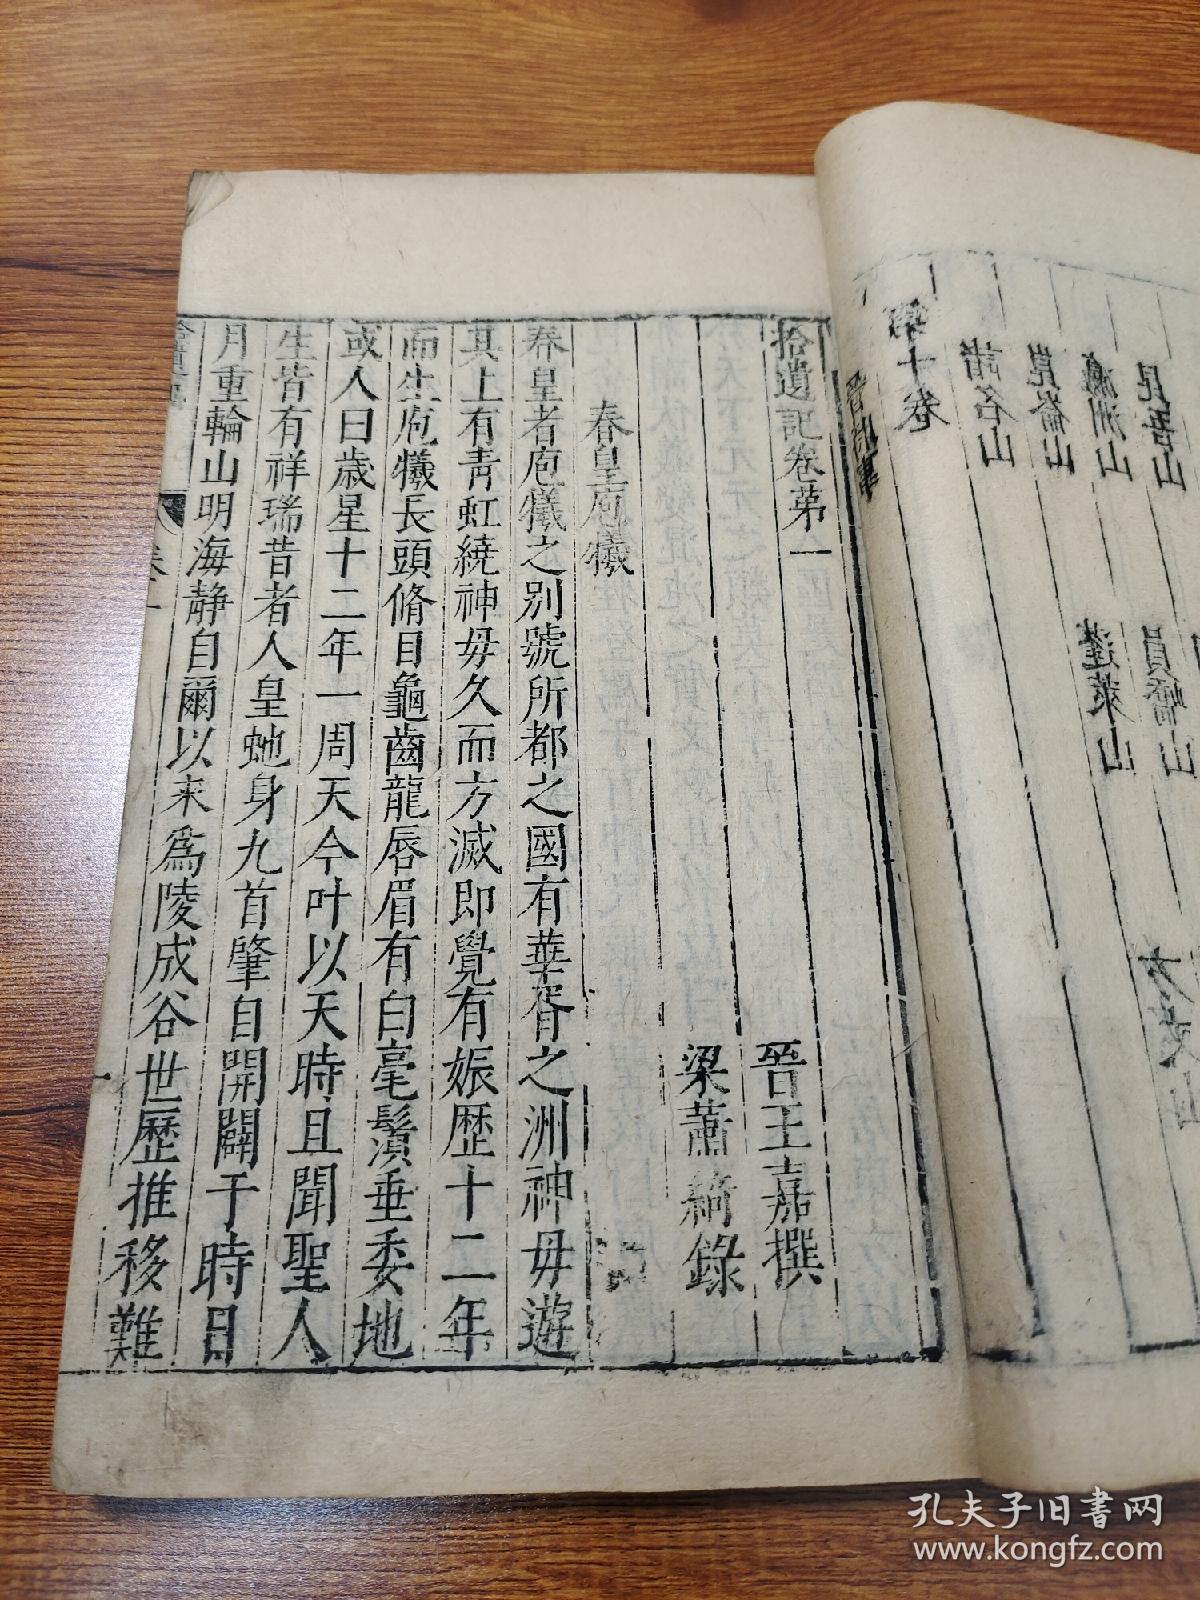 拾遺記卷第一
晉王嘉撰
梁蕭綺錄
春皇庖犧
春皇者庖犧之別號所都之國有華胥之洲神毋遊
其上有青虹繞神毋久而方滅即覺有娠歴十二年
而生庖犧長頭脩目龜齒龍唇眉有白毫鬚垂委地
或人曰歲星十二年一周天今叶以天時且聞聖人
生皆有祥瑞昔者人皇虵身九首肇自開闢于時日
月重輪山明海静自爾以来爲陵成谷世歴推移難
卷一
昆吾山
瀛洲山
員嶠山
崑崙山
蓬萊山
諸名山
第十卷
晉時事
孔夫子旧书网
www.kongfz.com